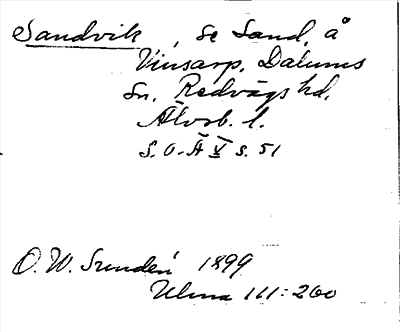 Sandvik, se Sand, å
Vinsarp, Dalums
sn, Redvägs hd,
Älvsb. l.
S.O.Ä V s. 51
O. W. Sundén 1899
Ulma 111:260